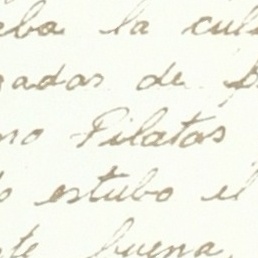 eba la cul
gadas de p
no Pilatos
o estubo el
te buena,